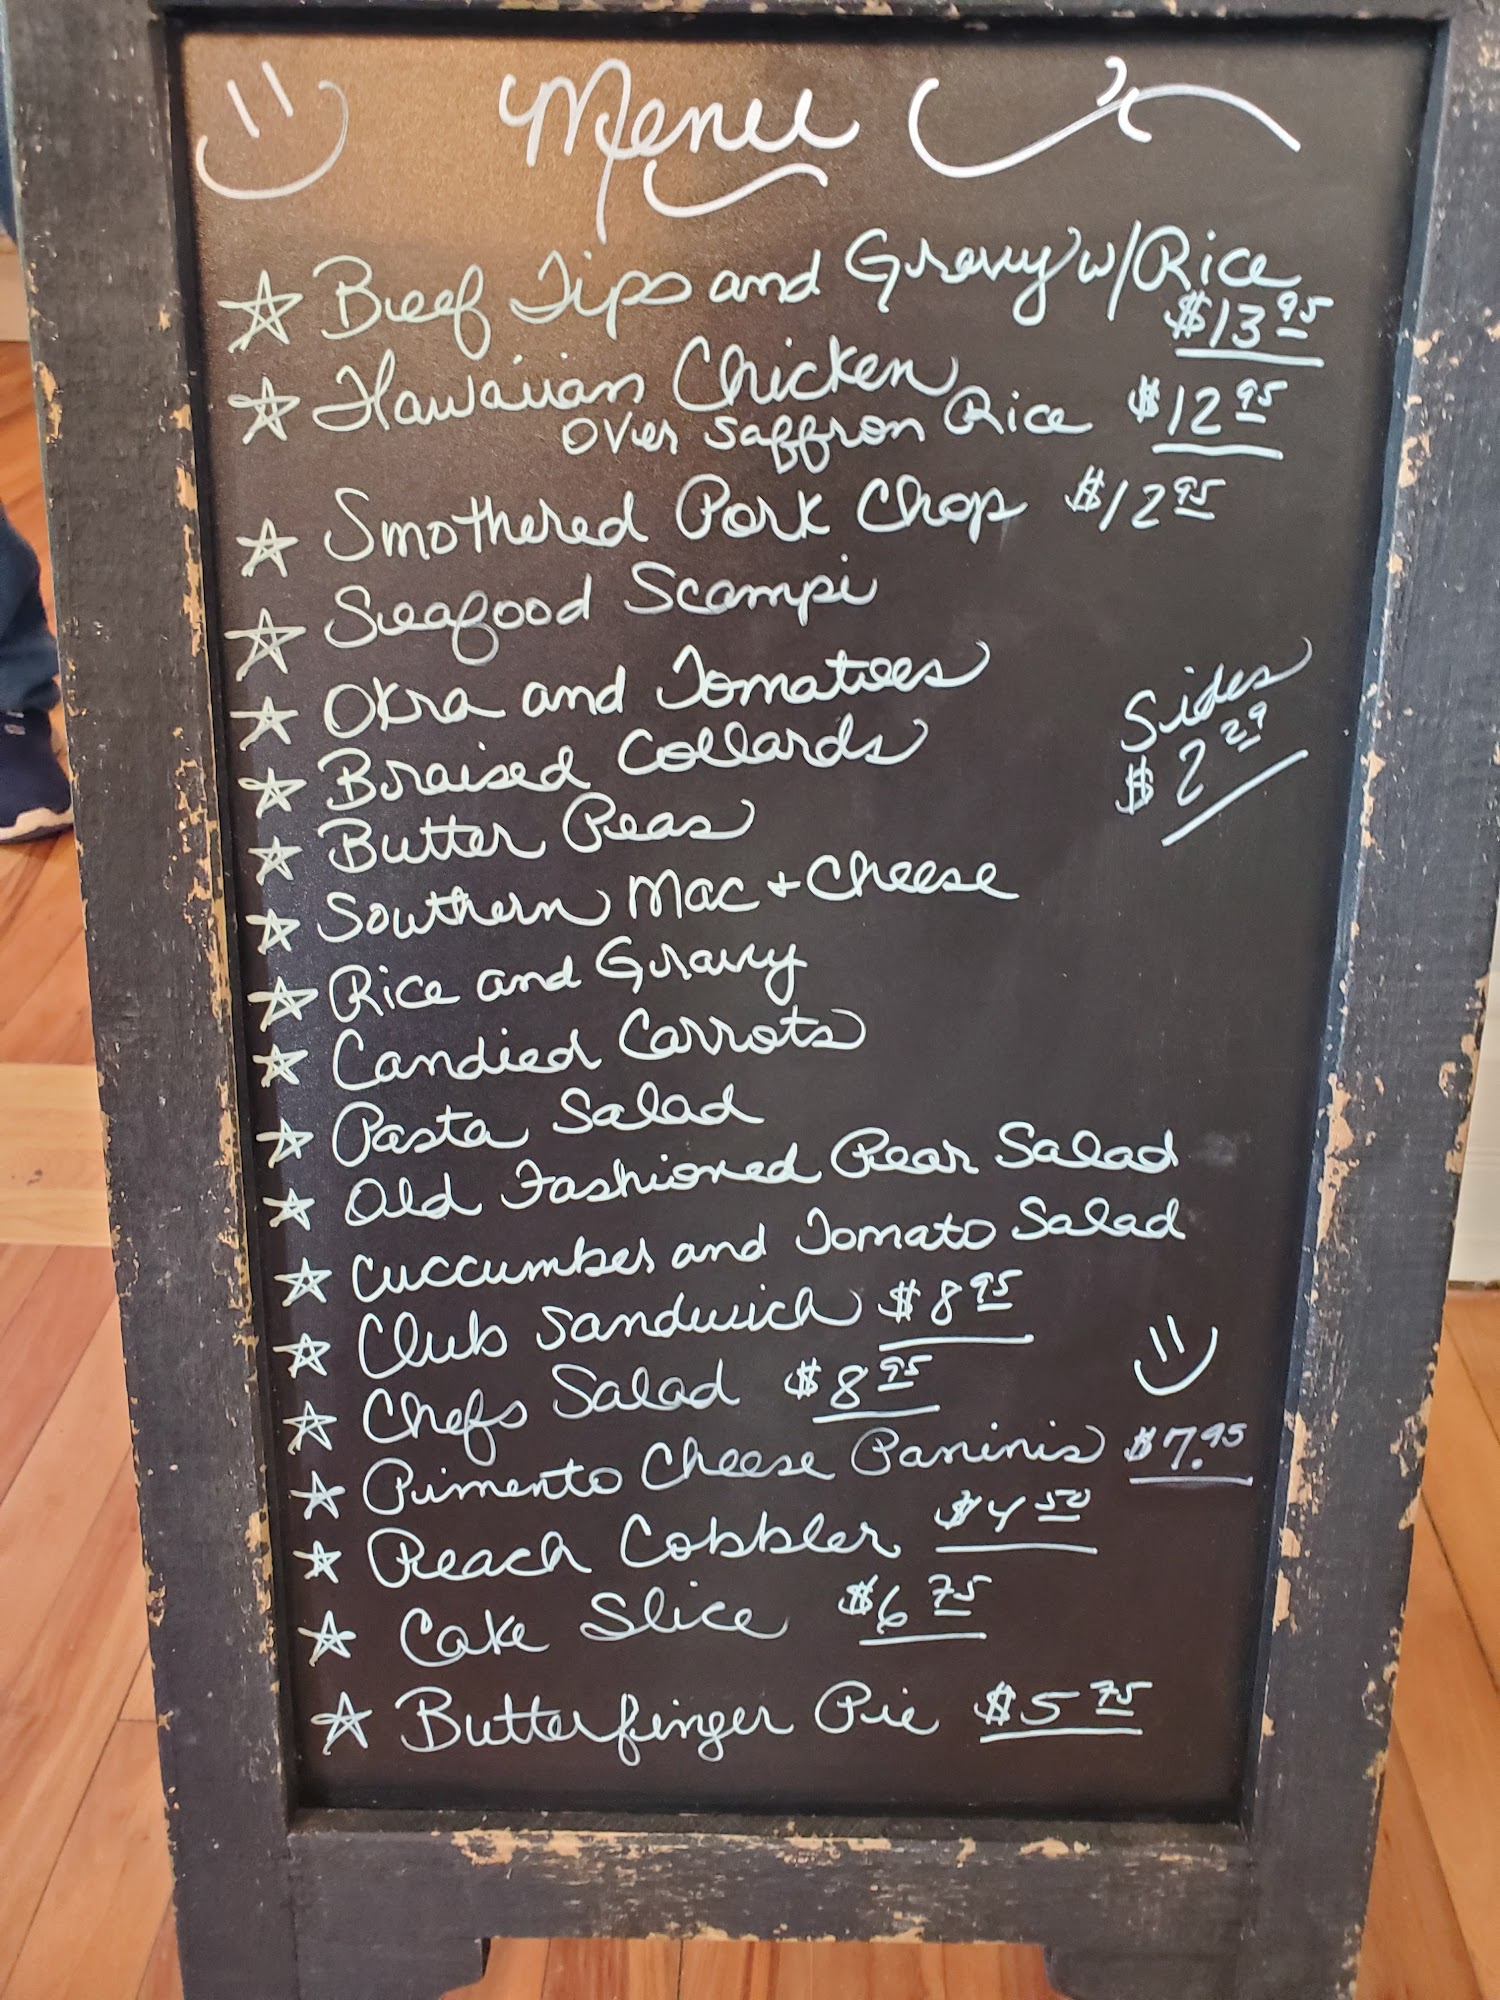 Menu
Beef Tips and Gravy w/Rice
$13.95
Hawaiian Chicken
over Saffron Rice $12.95
Smothered Pork Chop $12.95
Seafood Scampi
Okra and Tomatoes
Braised Collards
Butter Peas
Sides
$2.29
Southern Mac + Cheese
Rice and Gravy
Candied Carrots
Pasta Salad
Old Fashioned Pear Salad
Cuccumber and Tomato Salad
Club Sandwich $8.95
Chefs Salad $8.95
Pimento Cheese Paninis $7.95
Peach Cobbler $4.50
Cake Slice $6.75
Butterfinger Pie $5.75